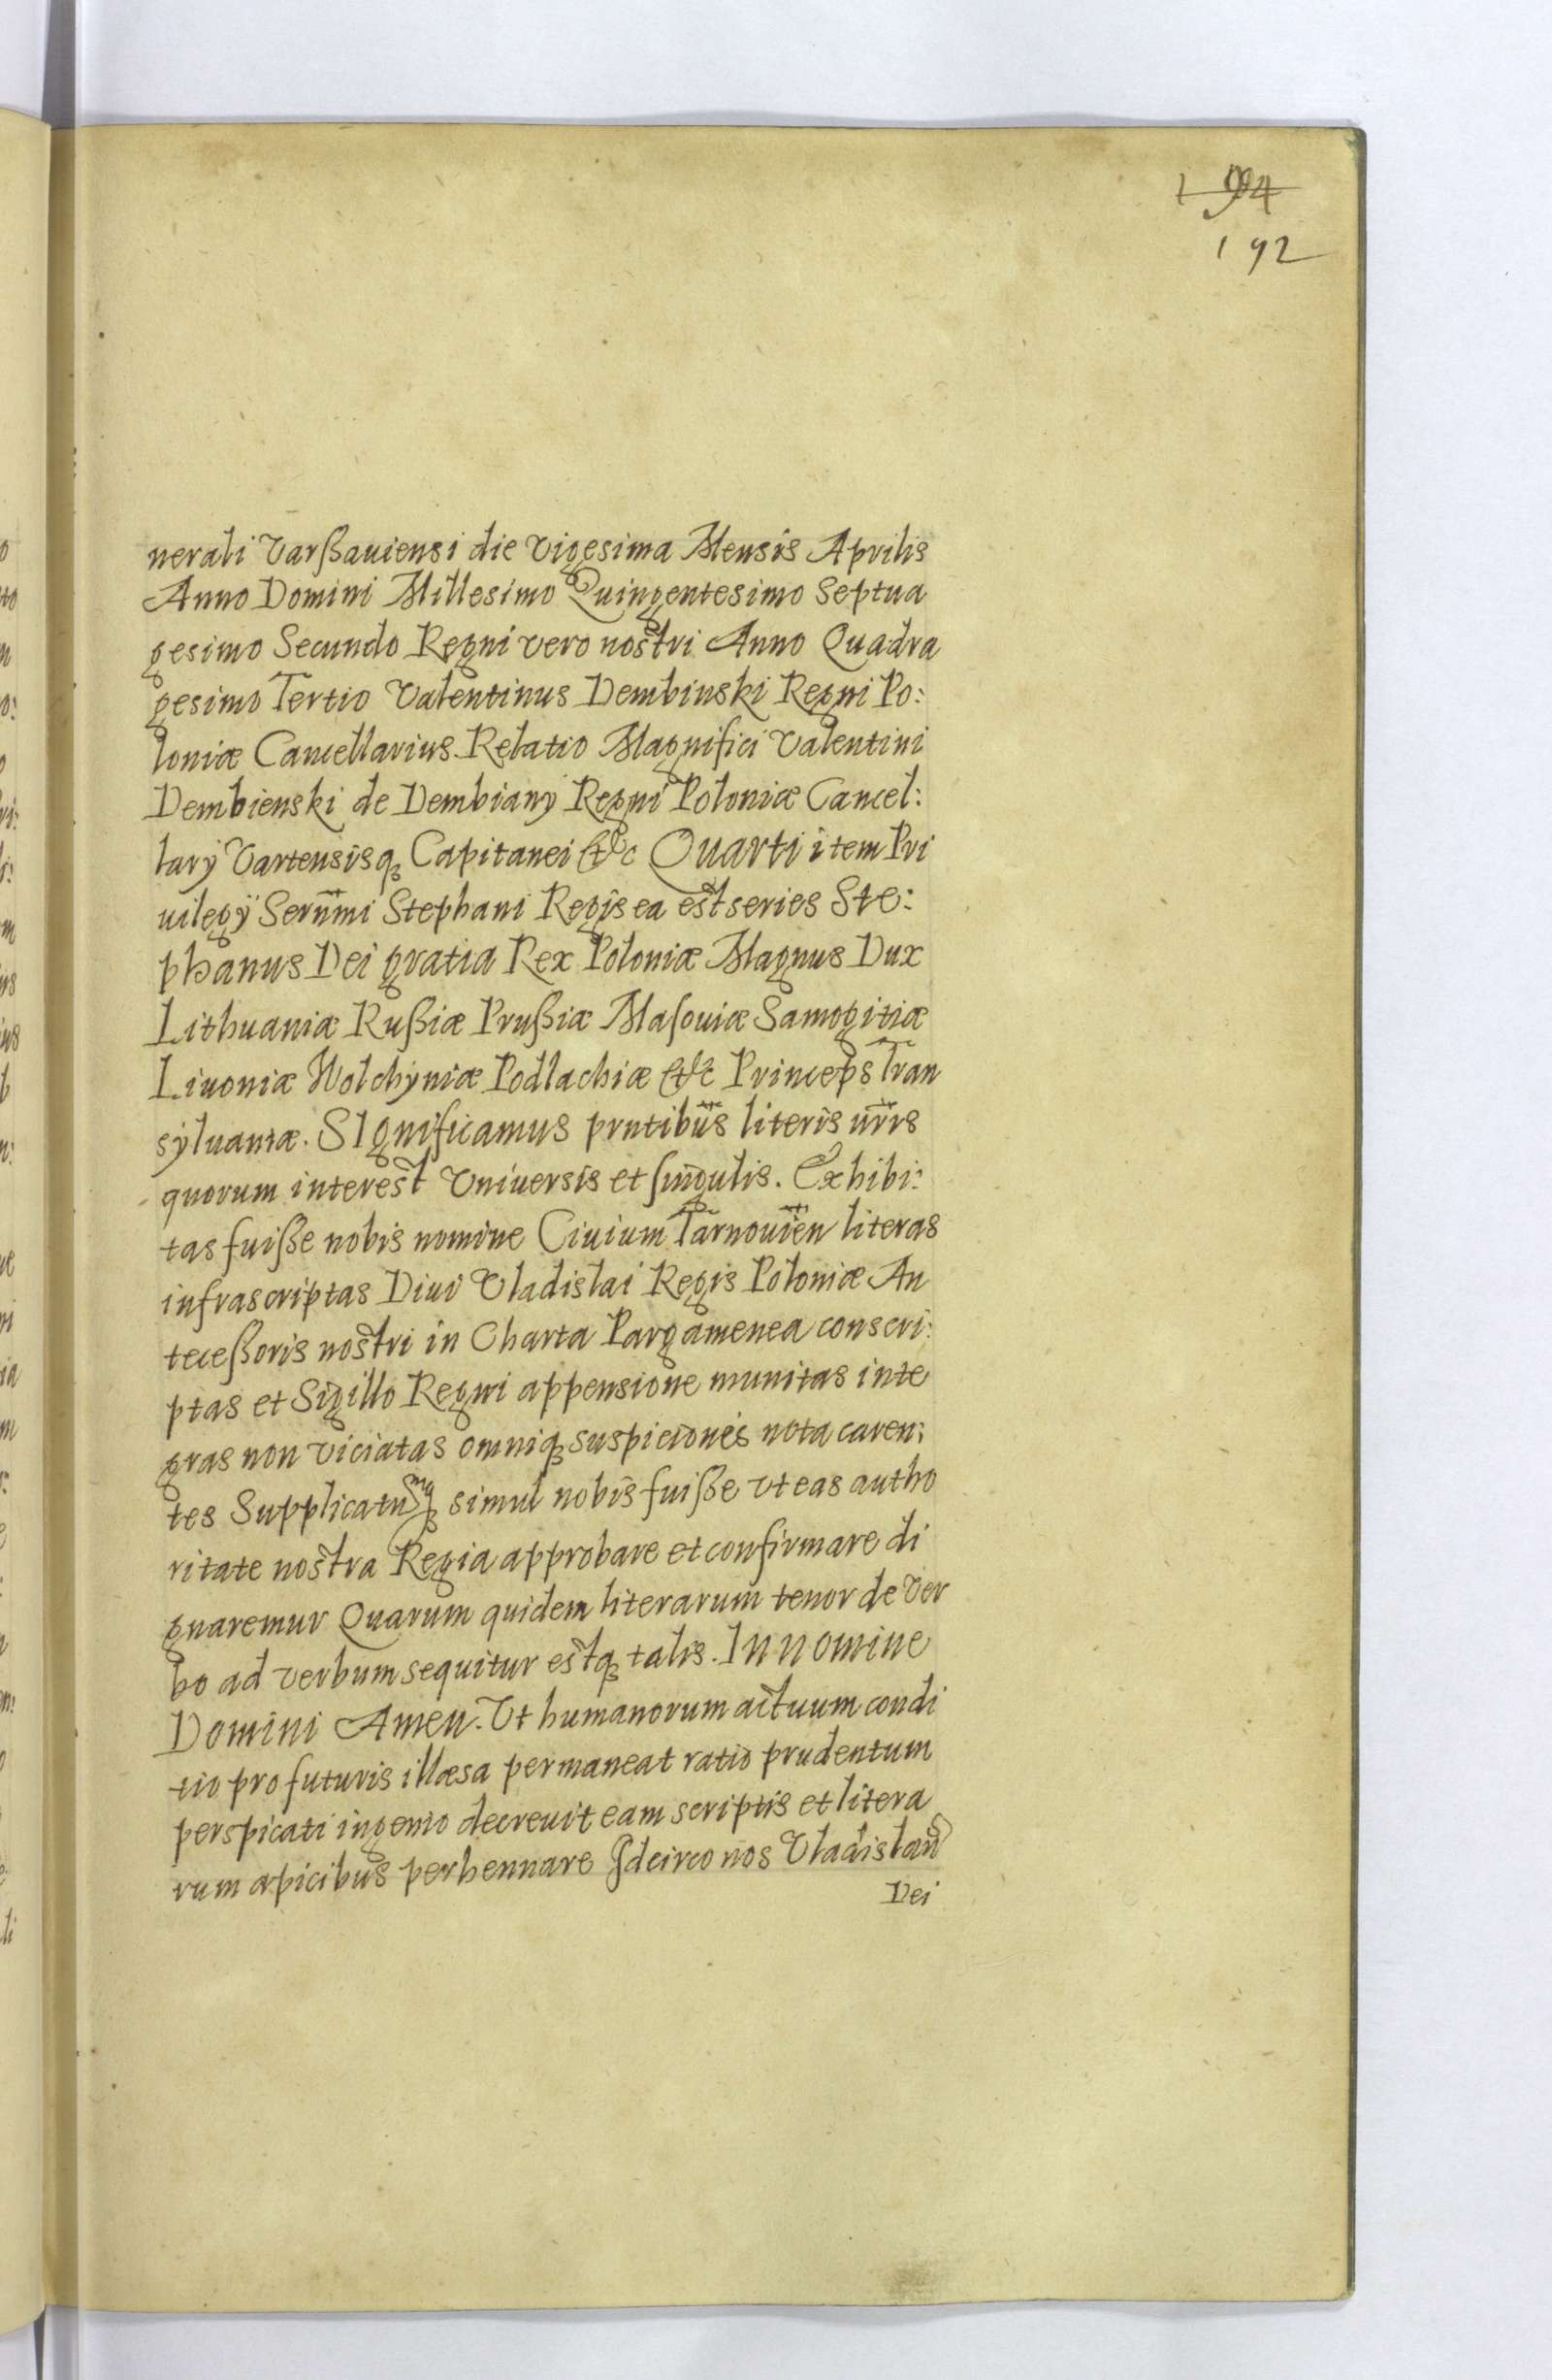 194
192
nerali Varßauiensi die Vigesima Mensis Aprilis
Anno Domini Millesimo Quingentesimo Septua
gesimo Secundo Regni vero nostri Anno Quadra
gesimo Tertio Valentinus Dembinski Regni Po:
loniæ Cancellarius. Relatio Magnifici Valentini
Dembienski de Dembiany Regni Poloniæ Cancel:
larÿ Vartensisq3 Capitanei &c Quarti item Pri
uilegÿ Serm̃mi Stephani Regis ea est series Ste:
phanus Dei gratia Rex Poloniæ Magnus Dux
Lithuaniæ Rußiæ Prußiæ Masouiæ Samogitiæ
Liuoniæ Wolchÿniæ Podlachiæ &c Princeps Tran
syluaniæ. SIgnificamus pñtibus literis ñris
quorum interest Vniuersis et singulis. Exhibi:
tas fuiße nobis nomine Ciuium Tarnouien̄ literas
infrascriptas Diui Vladislai Regis Poloniæ An
teceßoris nostri in Charta Pargamenea conscri:
ptas et Sigillo Regni appensione munitas inte
gras non viciatas omniq3 suspicionis nota caren:
tes Supplicatumq3 simul nobis fuiße vt eas autho
ritate nostra Regia approbare et confirmare di
gnaremur Quarum quidem literarum tenor de Ver
bo ad verbum sequitur estq3 talis. In nomine
Domini Amen. Vt humanorum actuum condi
tio pro futuris illæsa permaneat ratio prudentum
perspicati ingenio decreuit eam scriptis et litera
rum apicibus perhennare Idcirco nos Vladislaus
Dei